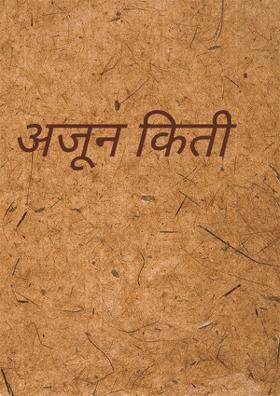 अजून किती